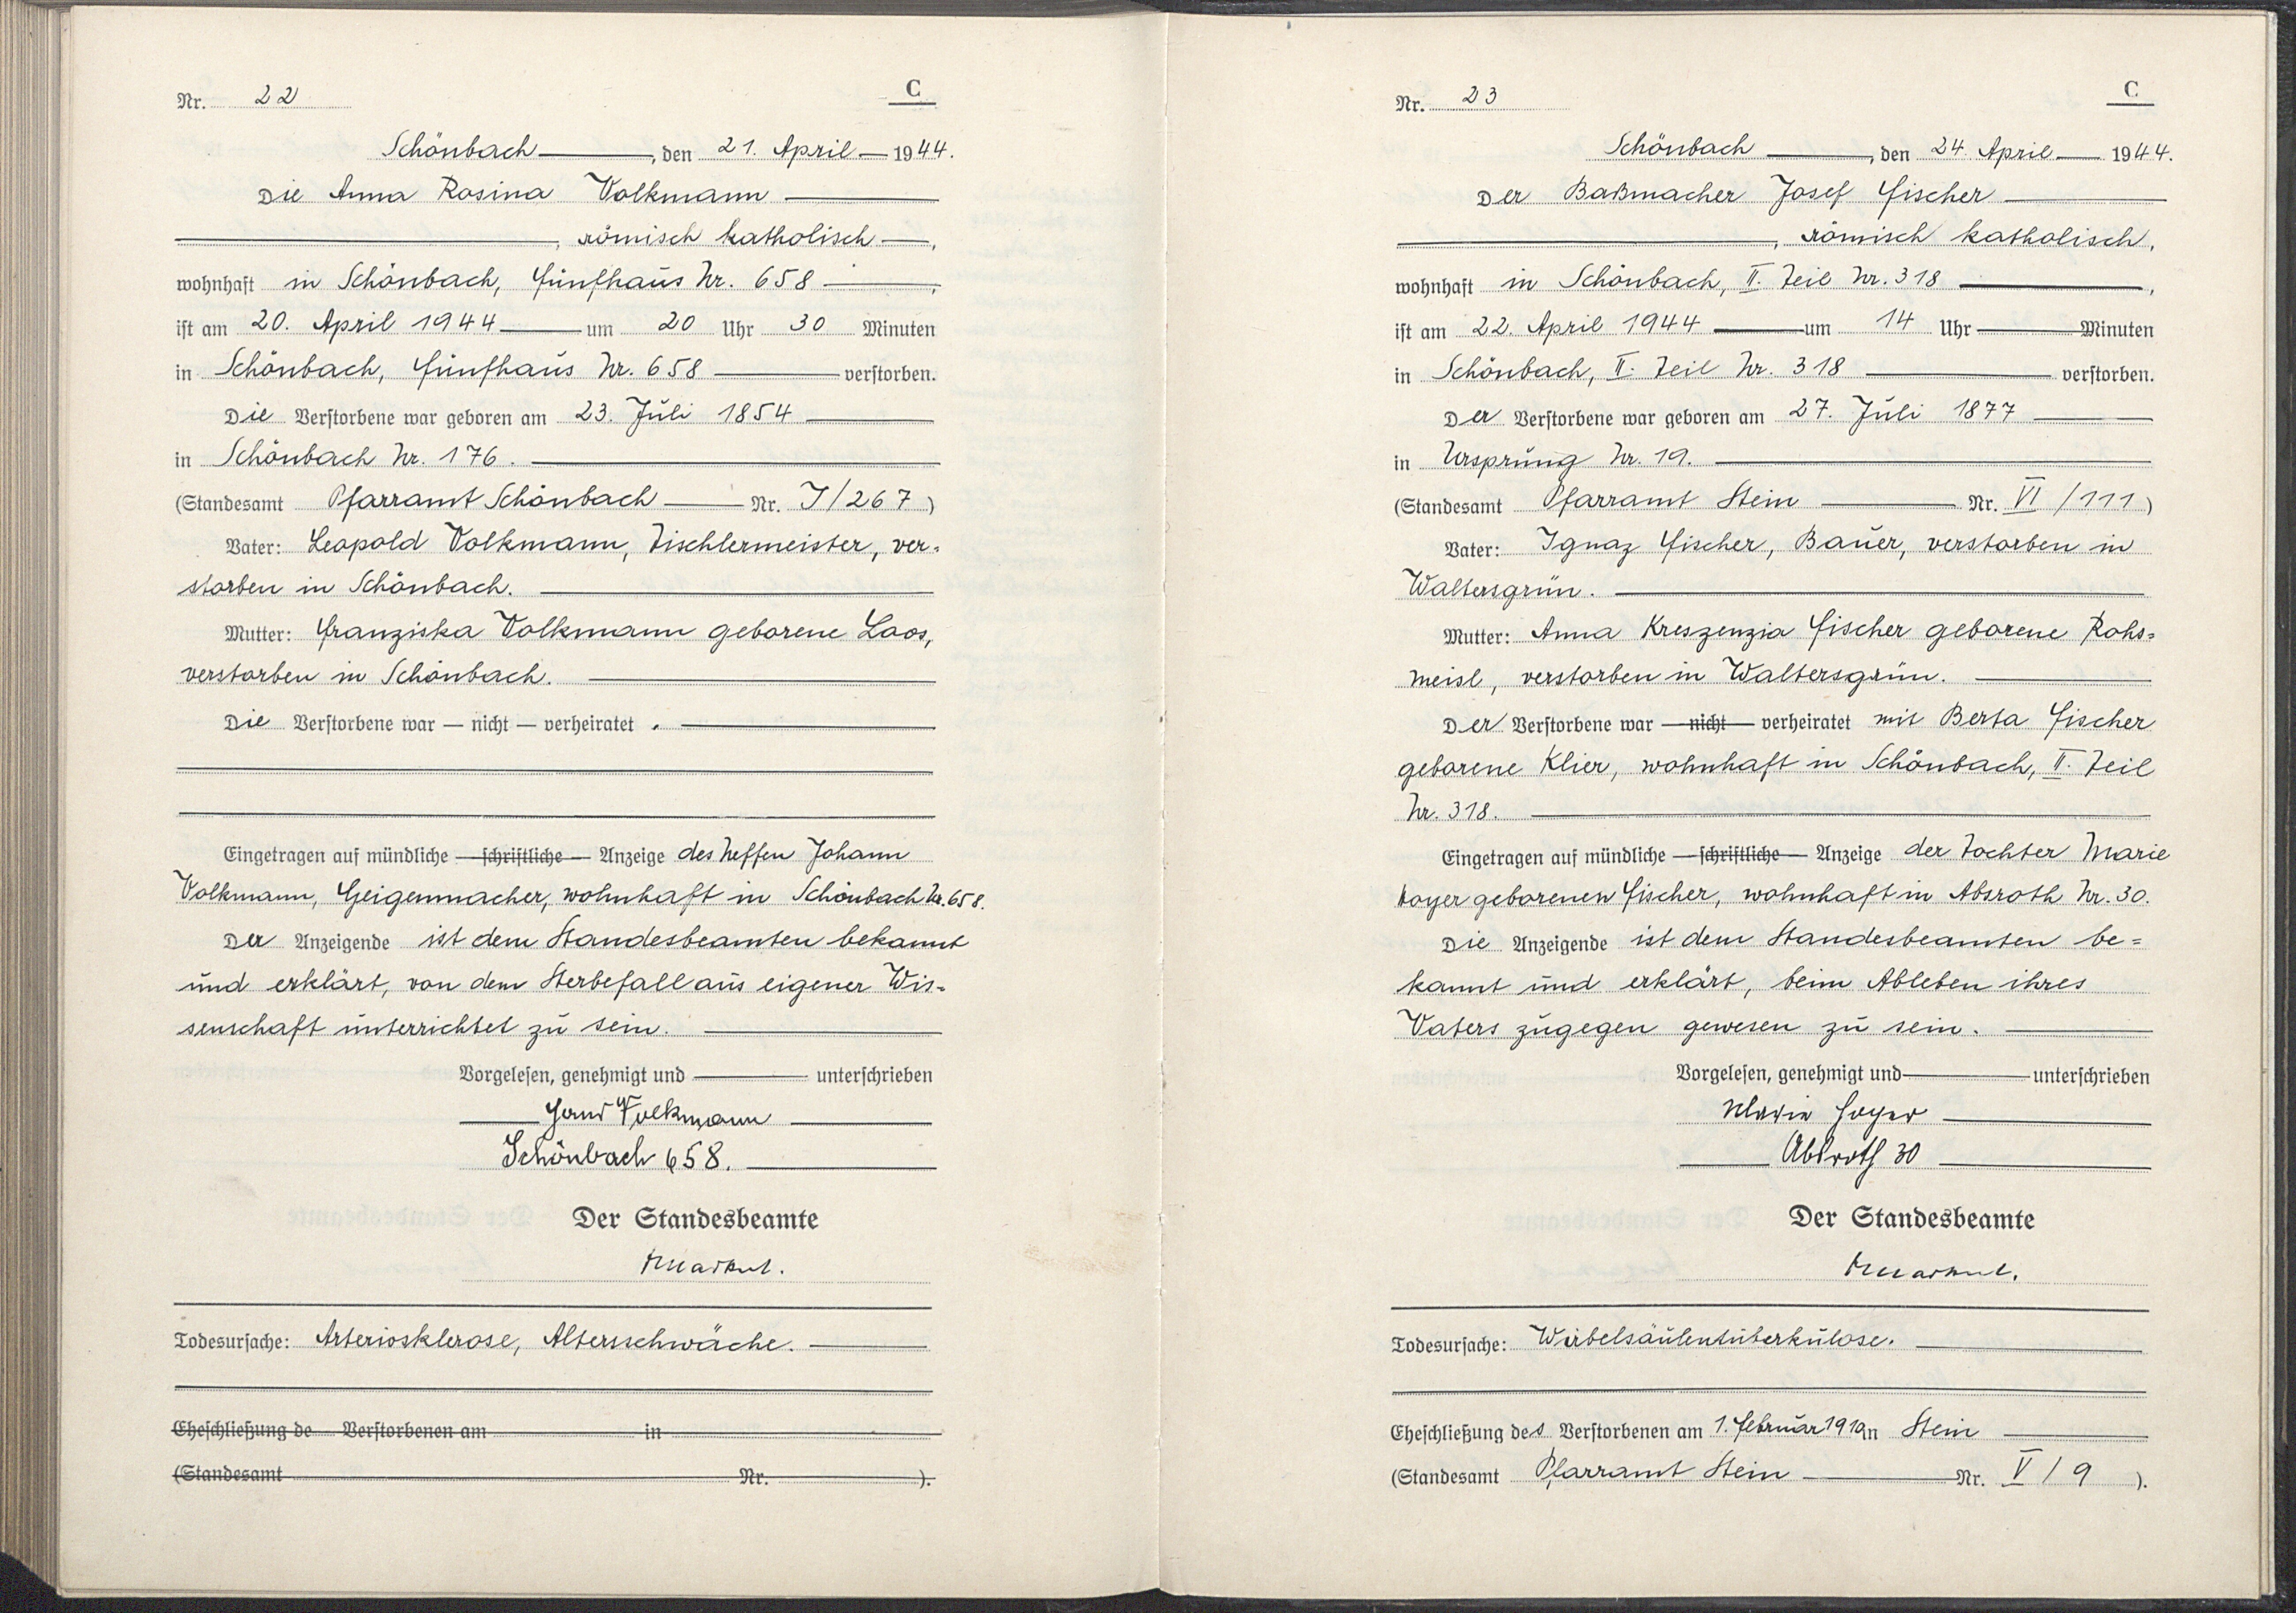 Nr. 22
C
Schönbach, den 21. April 1944.
Die Anna Rosina Volkmann
, römisch katholisch,
wohnhaft in Schönbach, Fünfhaus Nr. 658,
ist am 20. April 1944 um 20 Uhr 30 Minuten
in Schönbach, Fünfhaus Nr. 658 verstorben.
Die Verstorbene war geboren am 23. Juli 1854
in Schönbach Nr. 176.
(Standesamt Pfarramt Schönbach Nr. I/267)
Vater: Leopold Volkmann, Tischlermeister, ver=
storben in Schönbach.
Mutter: Franziska Volkmann geborene Laos,
verstorben in Schönbach.
Die Verstorbene war — nicht — verheiratet.
Eingetragen auf mündliche — schriftliche — Anzeige des Neffen Johann
Volkmann, Geigenmacher, wohnhaft in Schönbach Nr. 658.
Der Anzeigende ist dem Standesbeamten bekannt
und erklärt, von dem Sterbefall aus eigener Wis=
senschaft unterrichtet zu sein.
Vorgelesen, genehmigt und unterschrieben
Volkmann
Schönbach 658.
Der Standesbeamte
Todesursache: Arteriosklerose, Altersschwäche.
Eheschließung de Verstorbenen am in
(Standesamt Nr. ).
Nr. 23
C
Schönbach, den 24. April 1944.
Der Baßmacher Josef Fischer
, römisch katholisch,
wohnhaft in Schönbach, II. Teil Nr. 318,
ist am 22. April 1944 um 14 Uhr Minuten
in Schönbach, II. Teil Nr. 318 verstorben.
Der Verstorbene war geboren am 27. Juli 1877
in Ursprung Nr. 19.
(Standesamt Pfarramt Stein Nr. VI/111)
Vater: Ignaz Fischer, Bauer, verstorben in
Waltersgrün.
Mutter: Anna Kreszenzia Fischer geborene Rohs=
meisl, verstorben in Waltersgrün.
Der Verstorbene war — nicht — verheiratet mit Berta Fischer
geborene Klier, wohnhaft in Schönbach, II. Teil
Nr. 318.
Eingetragen auf mündliche — schriftliche — Anzeige der Tochter Marie
Hoyer geborenen Fischer, wohnhaft in Absroth Nr. 30.
Die Anzeigende ist dem Standesbeamten be=
kannt und erklärt, beim Ableben ihres
Vaters zugegen gewesen zu sein.
Vorgelesen, genehmigt und unterschrieben
Maria Hoyer
Absroth 30
Der Standesbeamte
Todesursache: Wirbelsäulentuberkulose.
Eheschließung des Verstorbenen am 1. Februar in Stein
(Standesamt Pfarramt Stein Nr. V/9).